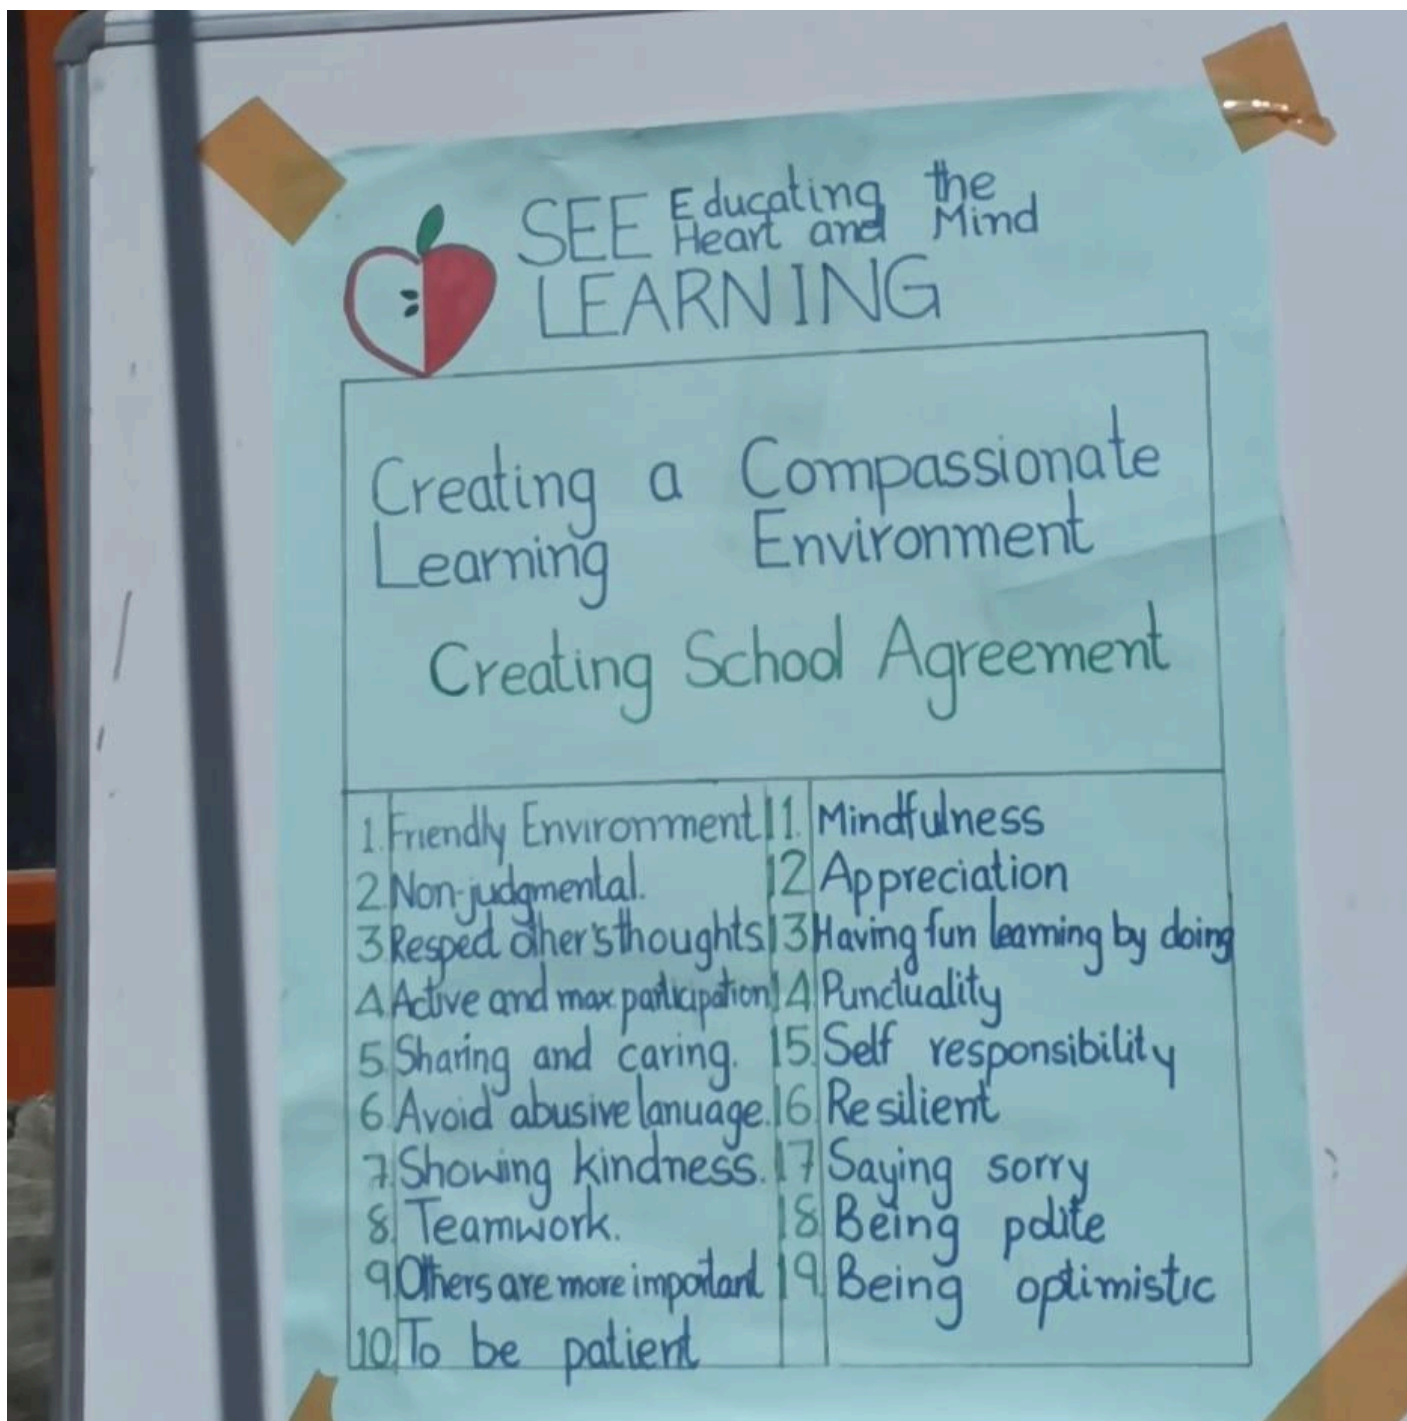 SEE Educating the
Heart and Mind
LEARNING
Creating a Compassionate
Learning Environment
Creating School Agreement
1. Friendly Environment
2. Non-judgmental.
3. Respect other's thoughts
4. Active and max participation
5. Sharing and caring.
6. Avoid abusive lanuage.
7. Showing kindness.
8. Teamwork.
9. Others are more important
10. To be patient
11. Mindfulness
12 Appreciation
13 Having fun learning by doing
14 Punctuality
15. Self responsibility
16. Resilient
17 Saying sorry
18 Being polite
19 Being optimistic